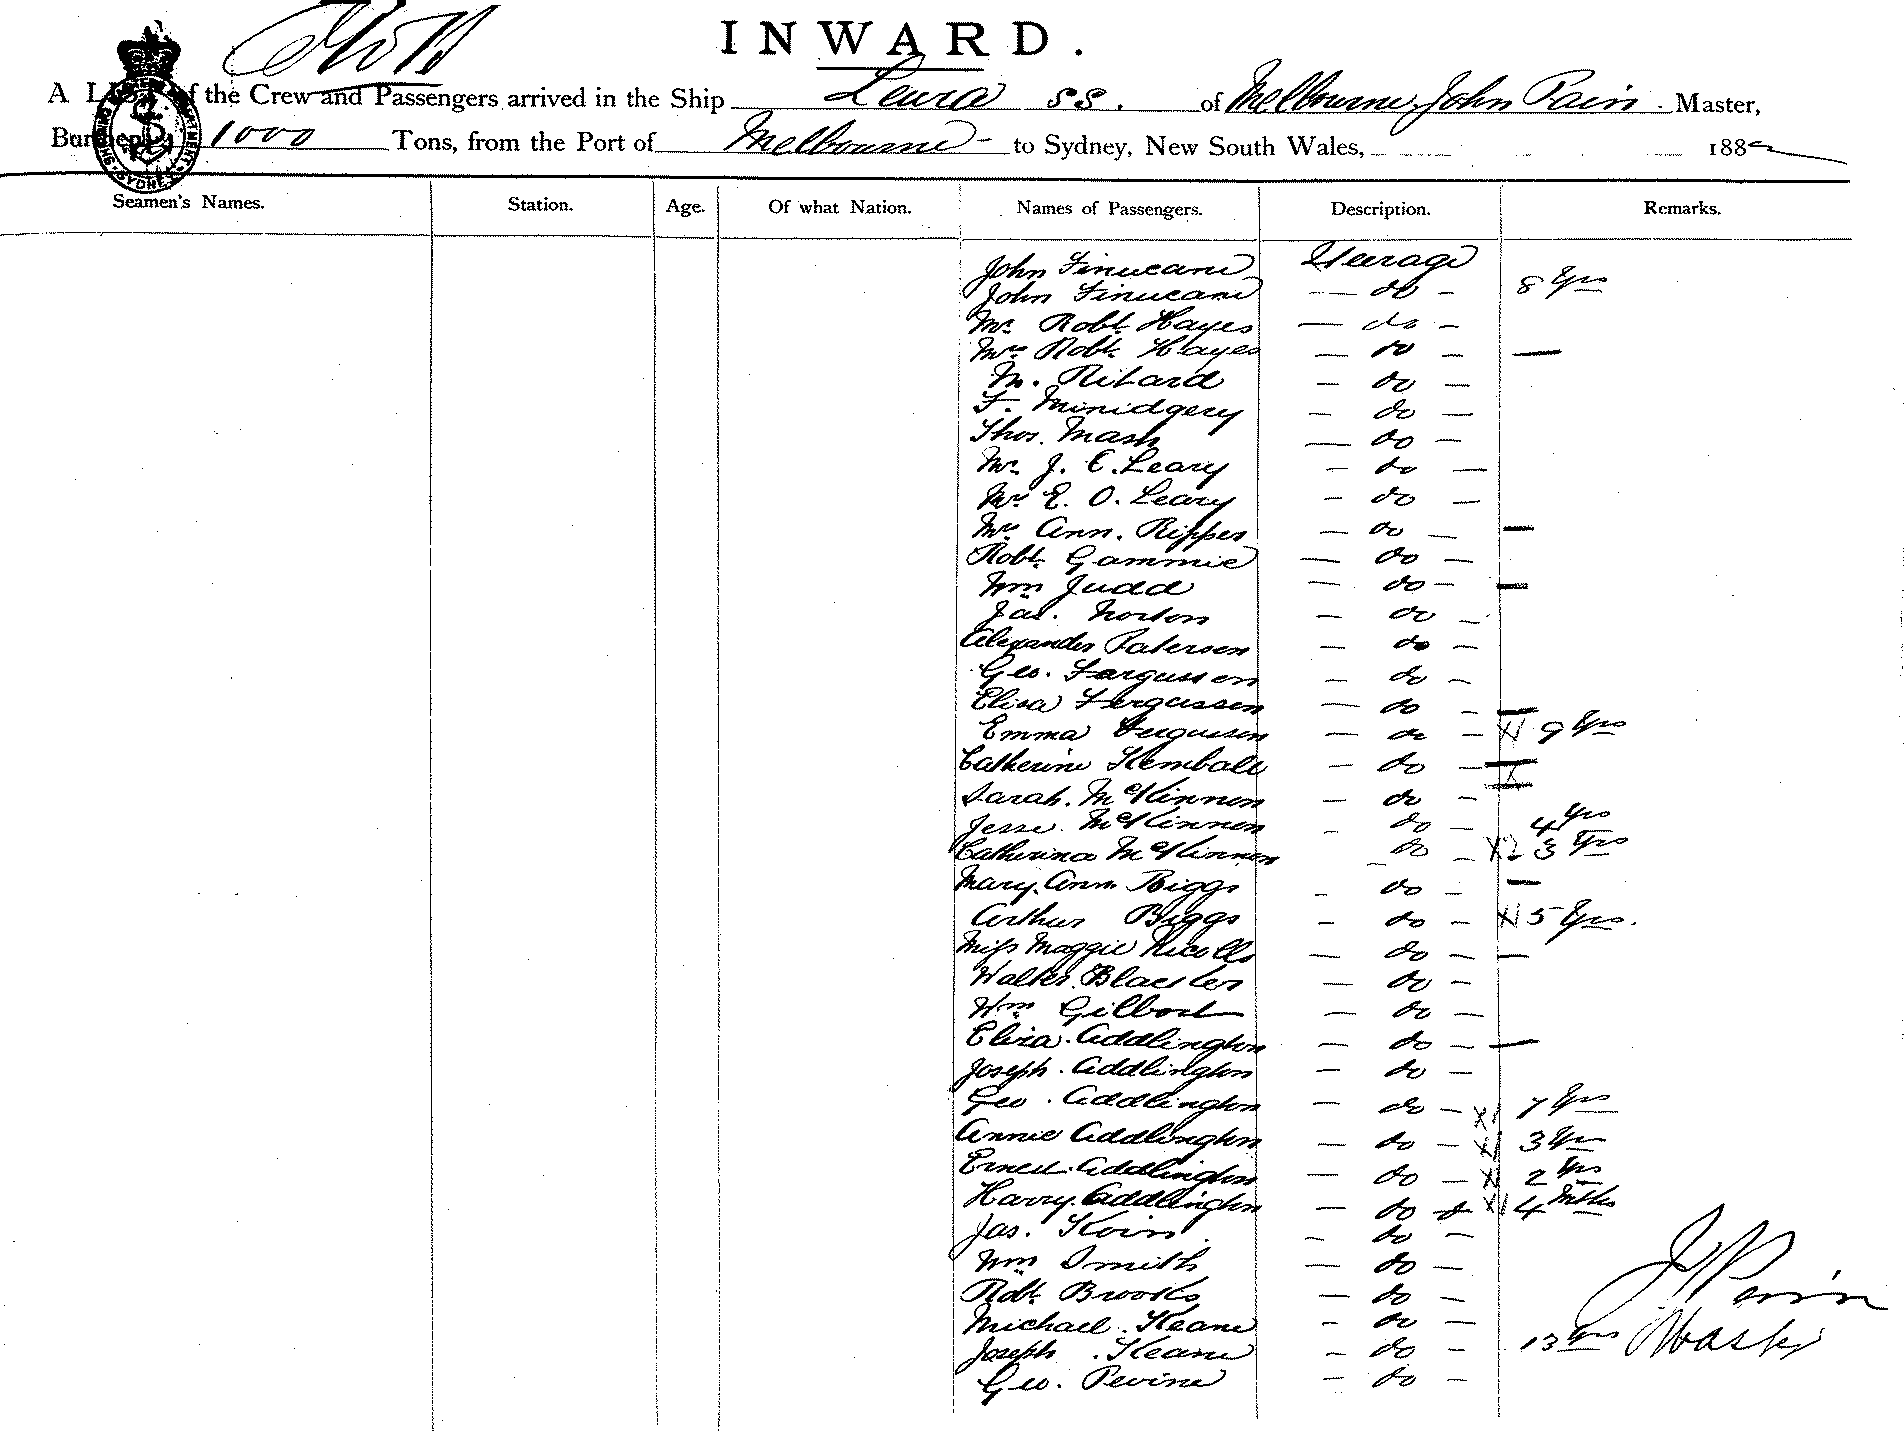 INWARD.
A List of the Crew and Passengers arrived in the Ship Leura SS. of Melbourne, John Pain. Master,
Burthen 1000 Tons, from the Port of Melbourne to Sydney, New South Wales, 188
Seamen's Names. Station. Age. Of what Nation. Names of Passengers. Description. Remarks.
John Finucane Steerage
John Finucane — do — 8 Yrs
Mr Robt Hayes — do —
Mrs Robt Hayes — do — —
M. Ritard — do —
F. Minidgery — do —
Thos. Mash — do —
Mr J. C. Leary — do —
Mr E. O. Leary — do —
Mrs Ann. Ripper — do — —
Robt Gammie — do —
Wm Judd — do — —
Jas. Norton — do —
Alexander Paterson — do —
Geo. Fergusson — do —
Eliza Fergusson — do — —
Emma Ferguson — do — X1 9 Yrs
Catherine Kemball — do — —
Sarah. McKinnon — do — —
Jesse. McKinnon — do — 4 Yrs
Catherina McKinnon — do — X2 3 Yrs
Mary. Ann Biggs — do — —
Arthur Biggs — do — X1 5 Yrs.
Miss Maggie Nicolls — do — —
Walter. — do —
Wm Gilbert — do —
Eliza. Addlington — do — —
Joseph. Addlington — do —
Geo. Addlington — do — X1 7 Yrs
Annie Addlington — do — X1 3 Yrs
Ernest. Addlington — do — X1 2 Yrs
Harry. Addlington — do — X1 4 Mths
Jas. — do —
Wm Smith — do —
Robt Brooks — do —
Michael. Keane — do —
Joseph. Keane — do — 13 Yrs
Geo. Pevine — do —
J Pain
Master